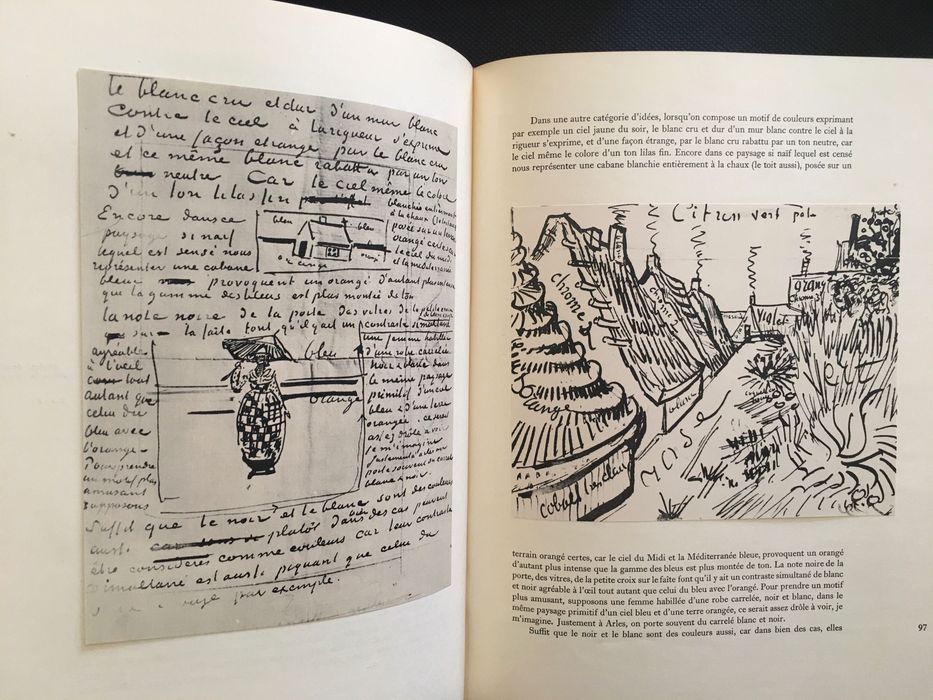 le blanc cru et dur d'un mur blanc
contre le ciel à la rigueur s'exprime
et d'une façon etrange par le blanc cru
et ce même blanc rabattu par un ton
neutre Car le ciel même le colore
d'un ton lilas fin
Encore dans ce
paysage si naif
lequel est sensé nous
représenter une cabane
blanchie entièrement
à la chaux
posée sur un terrain
orangé certes car
le ciel du midi
et la mediterranée
bleu
bleu
orange
bleue provoquent un orangé d'autant plus intense
que la gamme des bleus est plus montée de ton
la note noire de la porte des vitres de la petite croix
sur le faîte font qu'il y ait un
contraste simultané
agreable
à l'oeil
tout
autant que
celui du
bleu avec
l'orangé –
Pour prendre
un motif plus
amusant
supposons
bleu
orange
une femme habillée
d'une robe carrelée
noir & blanc dans
le même paysage
primitif d'un ciel
bleu & d'une terre
orangée – ce serait
assez drôle à voir
je m'imagine
justement à Arles on
porte souvent du carrelé
blanc & noir.
Suffit que le noir et le blanc sont des couleurs
aussi plutôt dans bien des cas peuvent
être considerés comme couleurs car leur contraste
simultané est aussi piquant que celui du
rouge par exemple.
Dans une autre catégorie d'idées, lorsqu'on compose un motif de couleurs exprimant
par exemple un ciel jaune du soir, le blanc cru et dur d'un mur blanc contre le ciel à la
rigueur s'exprime, et d'une façon étrange, par le blanc cru rabattu par un ton neutre, car
le ciel même le colore d'un ton lilas fin. Encore dans ce paysage si naïf lequel est censé
nous représenter une cabane blanchie entièrement à la chaux (le toit aussi), posée sur un
Citron vert pale
chrome
orange
violet
chrome
violet
orange
chrome 3
blanc
rose
cobalt blanc
terrain orangé certes, car le ciel du Midi et la Méditerranée bleue, provoquent un orangé
d'autant plus intense que la gamme des bleus est plus montée de ton. La note noire de la
porte, des vitres, de la petite croix sur le faîte font qu'il y ait un contraste simultané de blanc
et noir agréable à l'œil tout autant que celui du bleu avec l'orangé. Pour prendre un motif
plus amusant, supposons une femme habillée d'une robe carrelée, noir et blanc, dans le
même paysage primitif d'un ciel bleu et d'une terre orangée, ce serait assez drôle à voir, je
m'imagine. Justement à Arles, on porte souvent du carrelé blanc et noir.
Suffit que le noir et le blanc sont des couleurs aussi, car dans bien des cas, elles
97